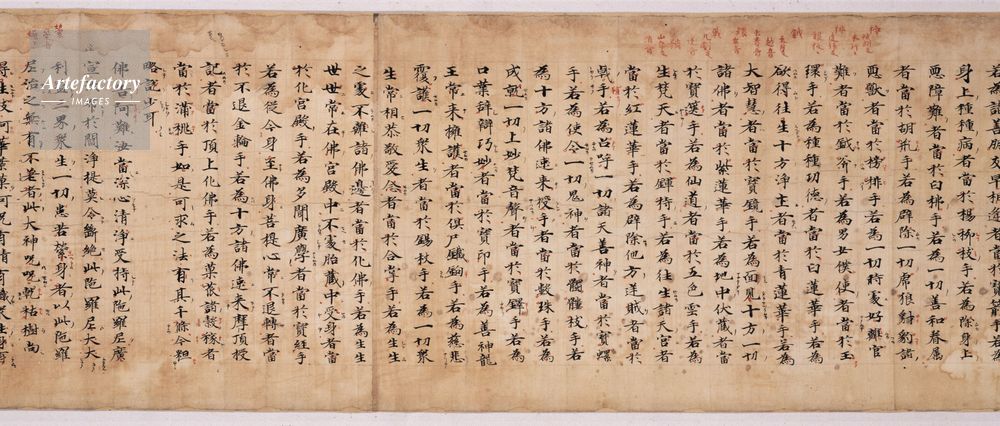 身上種種病者當於楊柳枝手若為除身上
惡障難者當於白拂手若為一切善和眷属
者當於胡瓶手若為辟除一切虎狼豺豹諸
惡獸者當於榜排手若為一切時處好離官
難者當於鉞斧手若為男女僕使者當於玉
環手若為種種功徳者當於白蓮華手若為
欲得往生十方淨土者當於青蓮華手若為
大智慧者當於寶鏡手若為面見十方一切
諸佛者當於紫蓮華手若為地中伏藏者當
於寶篋手若為仙道者當於五色雲手若為
生梵天者當於軍持手若為往生諸天宮者
當於紅蓮華手若為辟除他方逆賊者當於
戟手若為召呼一切諸天善神者當於寶螺
手若為使令一切鬼神者當於髑髏杖手若
為十方諸佛速來授手者當於數珠手若為
成就一切上妙梵音聲者當於寶鐸手若為
口業辭辯巧妙者當於寶印手若為善神龍
王常來擁護者當於俱尸鐵鉤手若為慈悲
覆護一切衆生者當於錫杖手若為一切衆
生常相恭敬愛念者當於合掌手若為生生
之處不離諸佛邊者當於化佛手若為生生
世世常在佛宮殿中不處胎藏中受身者當
於化宮殿手若為多聞廣學者當於寶經手
若為從今身至佛身菩提心常不退轉者當
於不退金輪手若為十方諸佛速來摩頂授
記者當於頂上化佛手若為菓蓏諸穀稼者
當於蒲桃手如是可求之法有其千條今粗
略説少耳
佛 阿難汝當深心清淨受持此陀羅尼廣
宣 於閻浮提莫令斷絶此陀羅尼大大
利 界衆生一切患若縈身者以此陀羅
尼治之無有不差者此大神呪呪乾枯樹尚
得生枝柯華菓何況有情有識衆生身有
Artefactory
IMAGES